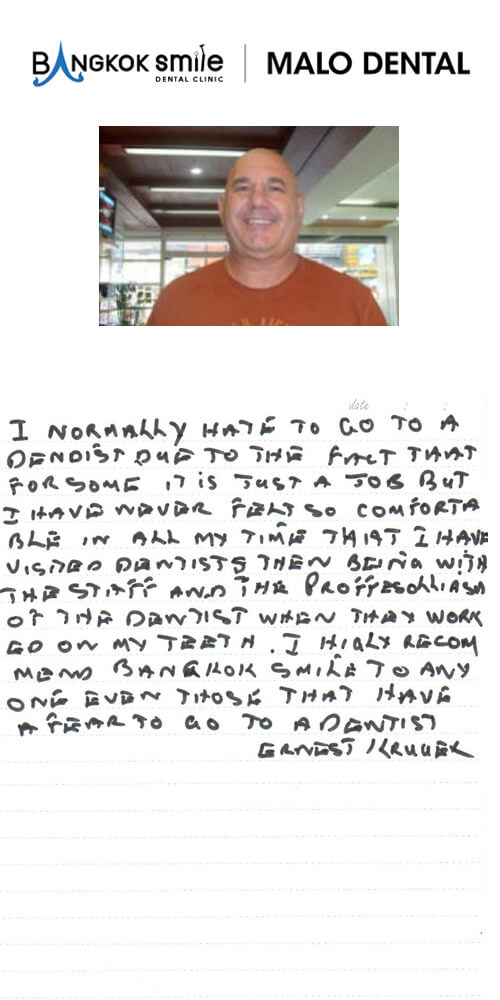 BANGKOK smile | MALO DENTAL
DENTAL CLINIC
date : :
I NORMALLY HATE TO GO TO A
DENDIST DUE TO THE FACT THAT
FOR SOME IT IS JUST A JOB BUT
I HAVE NEVER FELT SO COMFORTA
BLE IN ALL MY TIME THAT I HAVE
VISITED DENTISTS THEN BEING WITH
THE STAFF AND THE
OF THE DENTIST WHEN THEY WORK
ED ON MY TEETH. I HIGLY RECOM
MEND BANGKOK SMILE TO ANY
ONE EVEN THOSE THAT HAVE
A FEAR TO GO TO A DENTIST
ERNEST